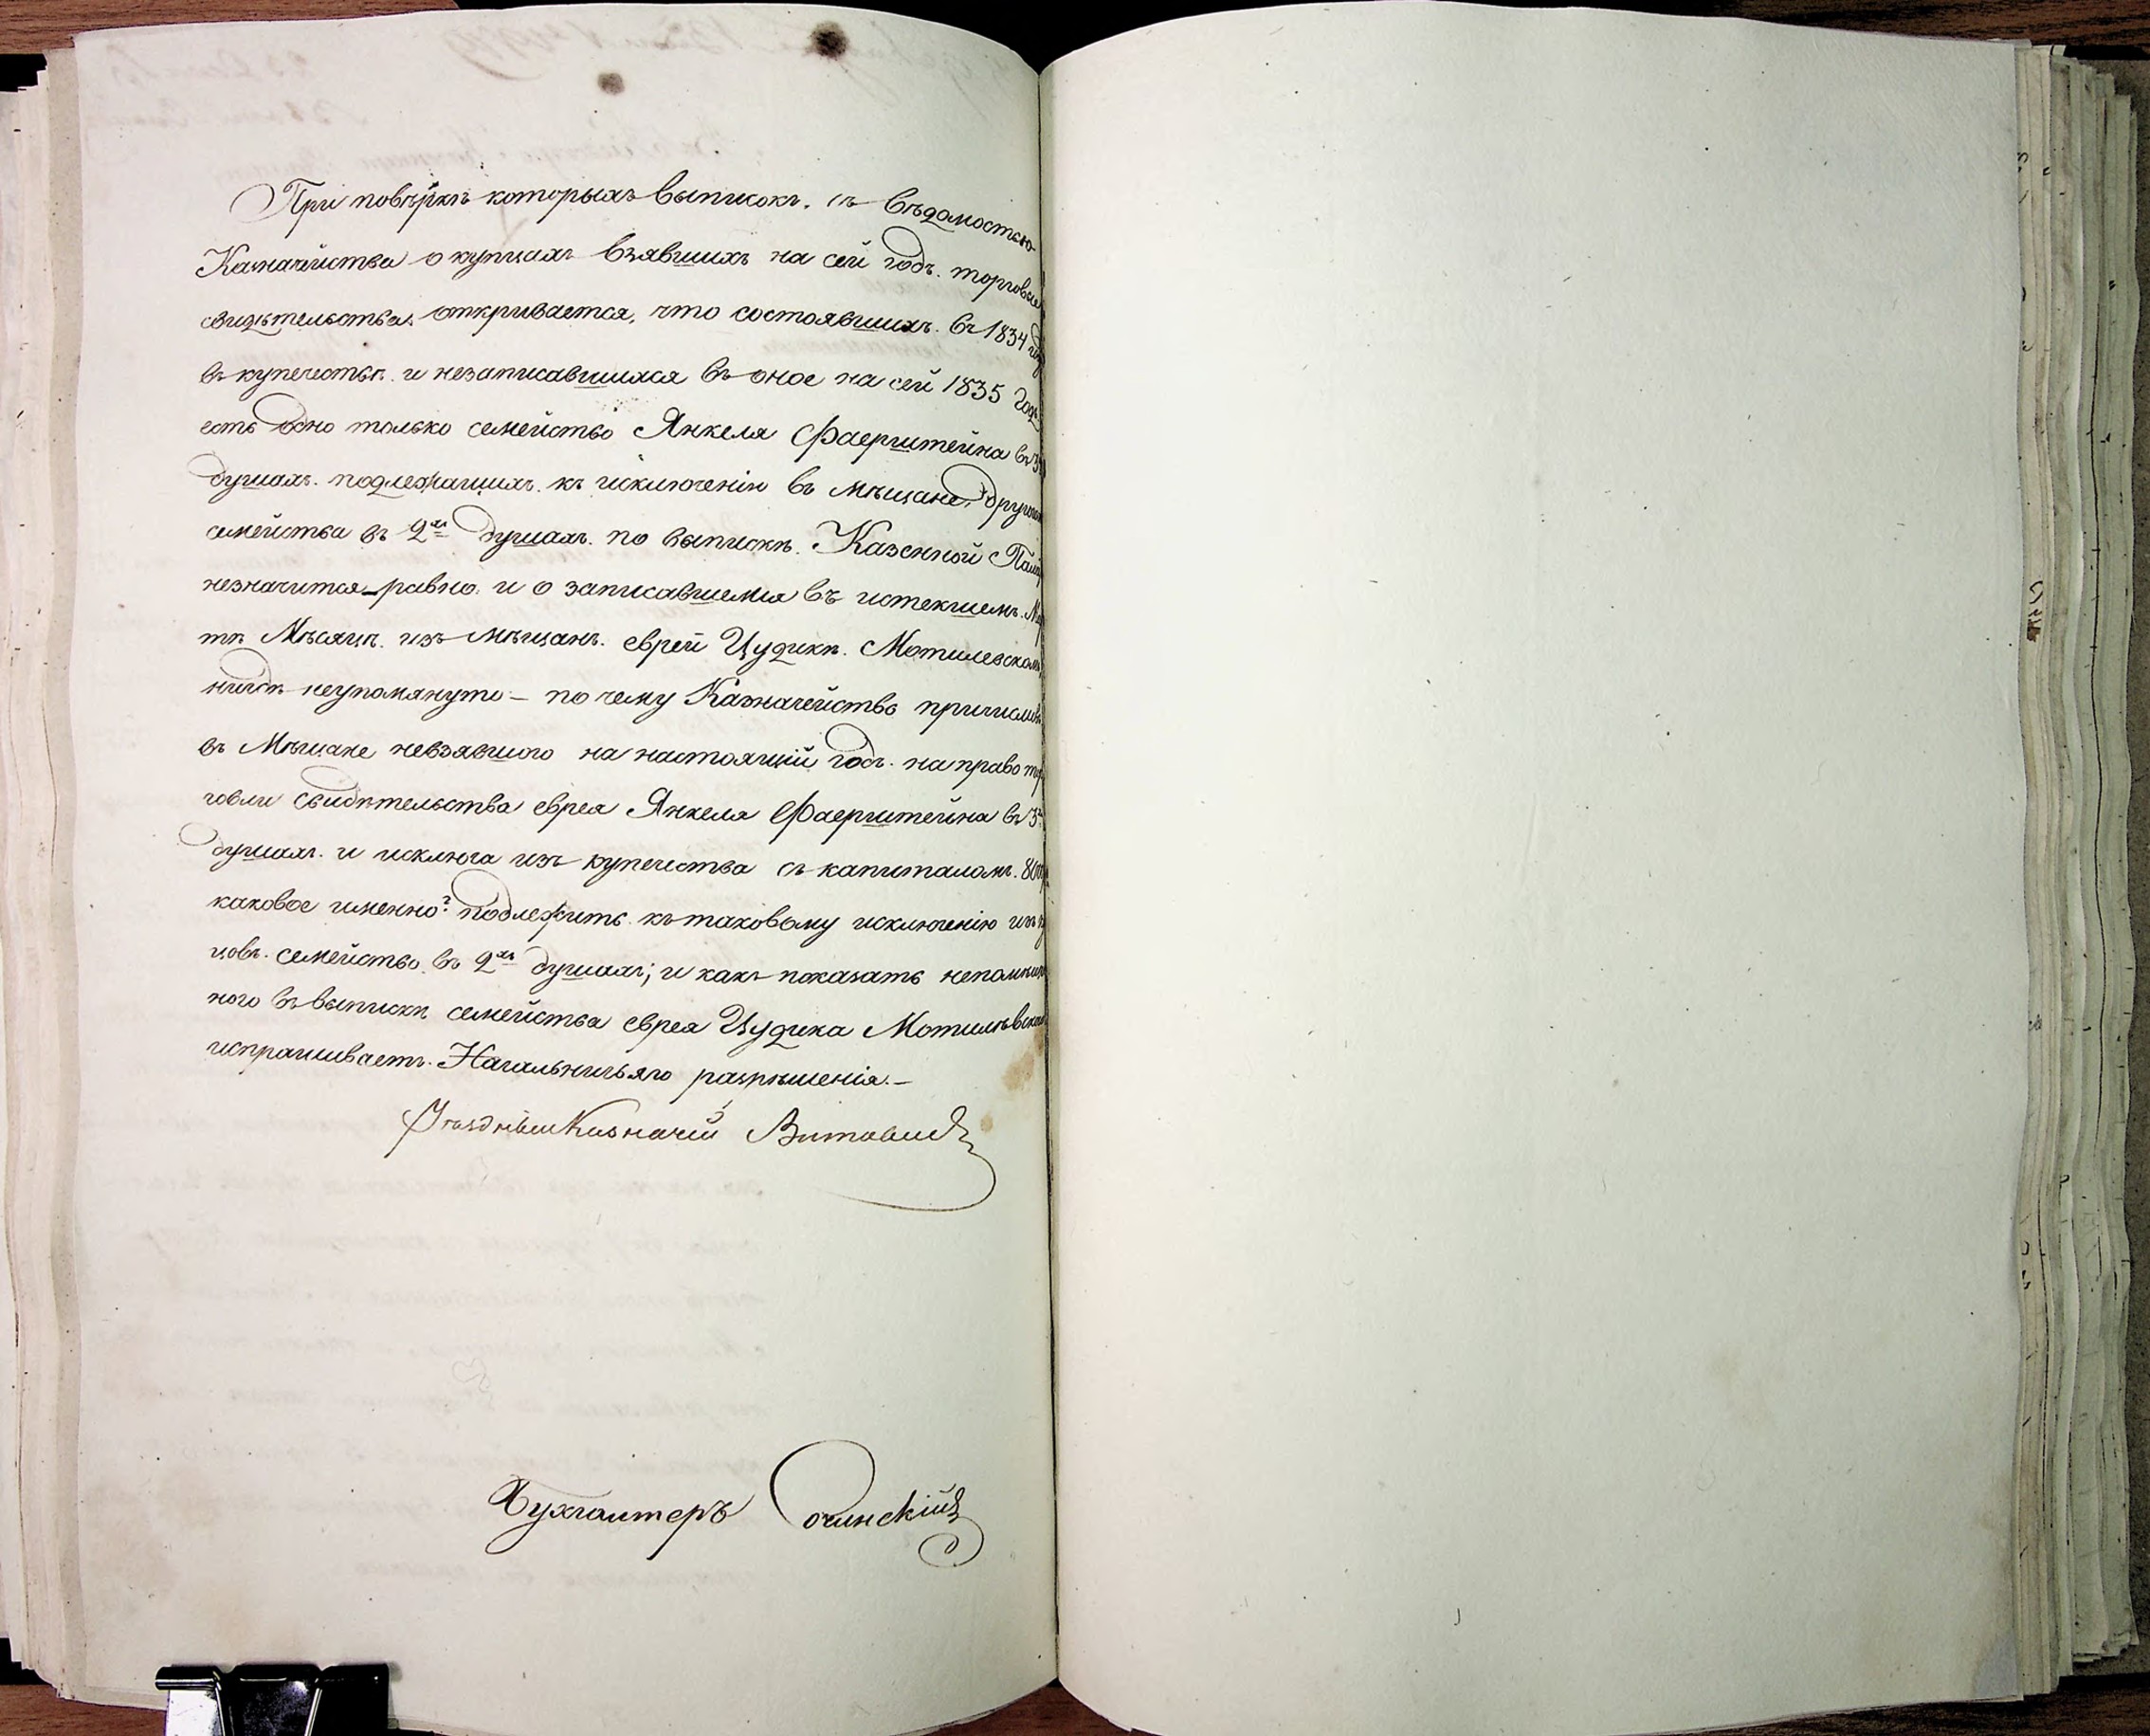 При повѣркѣ которыхъ выписокъ, съ вѣдомостью
Казначейства о купцахъ взявшихъ на сей годъ торговые
свидѣтельства, открывается, что состоявшихъ въ 1834 году
въ купечествѣ и незаписавшихся въ оное на сей 1835 годъ
есть одно только семейство Янкеля Фаерштейна въ 3хъ
душахъ подлежащихъ къ исключенію въ мѣщане, другого
семейства въ 2хъ душахъ по выпискѣ Казенной Пала
незначится равно и о записавшемся въ истекшемъ Мар
тѣ Мѣсяцѣ изъ мѣщанъ еврей Цудикѣ Мотилевскомъ
нигдѣ неупомянуто — по чему Казначейство причисливъ
въ Мѣщане невзявшого на настоящій годъ на право тор
говли свидѣтельства еврея Янкеля Фаерштейна въ 3хъ
душахъ и исключа изъ купечества съ капиталомъ
каковое именно? подлежитъ къ таковому исключенію изъ куп
цовъ семейство въ 2хъ душахъ; и какъ показать непомѣщен
ного въ выпискѣ семейства еврея Цудика Мотилѣвского
испрашиваетъ Начальничьяго разрѣшенія. —
Уѣздный Казначей
Бухгалтеръ